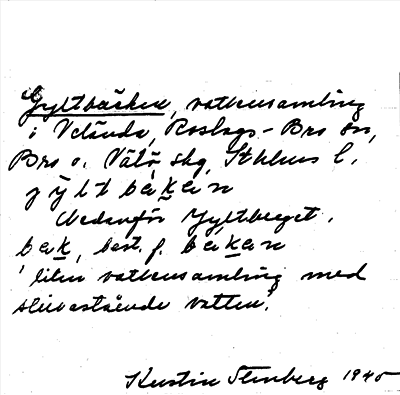 Gyltbäcken, vattensamling
i Velända, Roslags-Bro sn,
Bro o. Vätö skg, Sthlms l.
jỳltbäkan
Nedanför Gyltberget.
bäk, best. f. bäkan
'liten vattensamling med
stillastående vatten'.
Kerstin Stenberg 1945